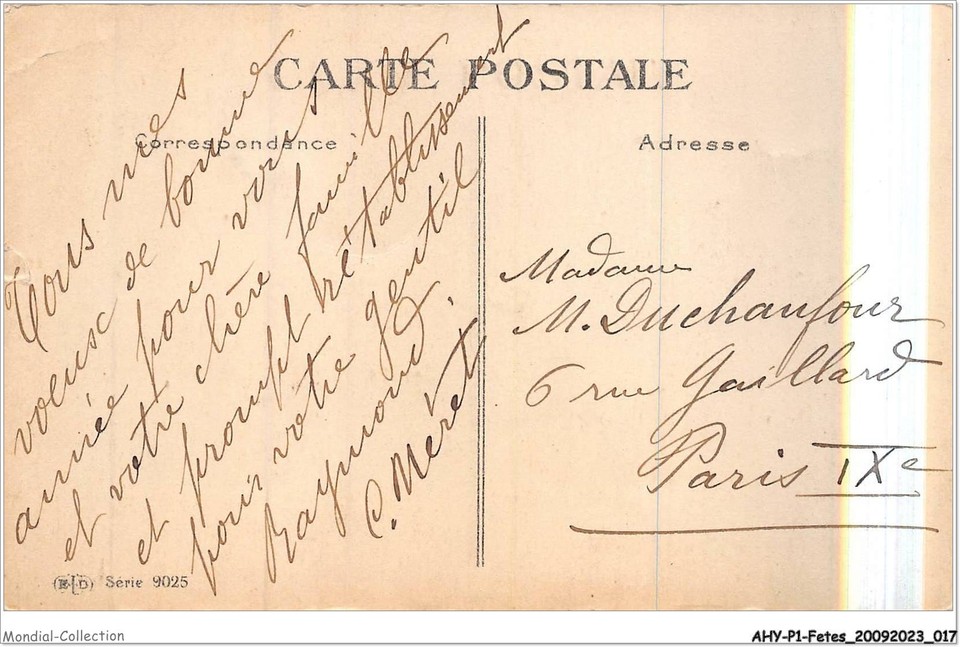 CARTE POSTALE
Correspondance
Adresse
Tous mes
voeux de bonne
année pour vous
et votre chère famille
et prompt rétablissement
pour votre gentil
Raymond.
C. Méret
Madame
M. Duchaufour
6 rue Gaillard
Paris IXe
(ELD) Série 9025
Mondial-Collection
AHY-P1-Fetes_20092023_017